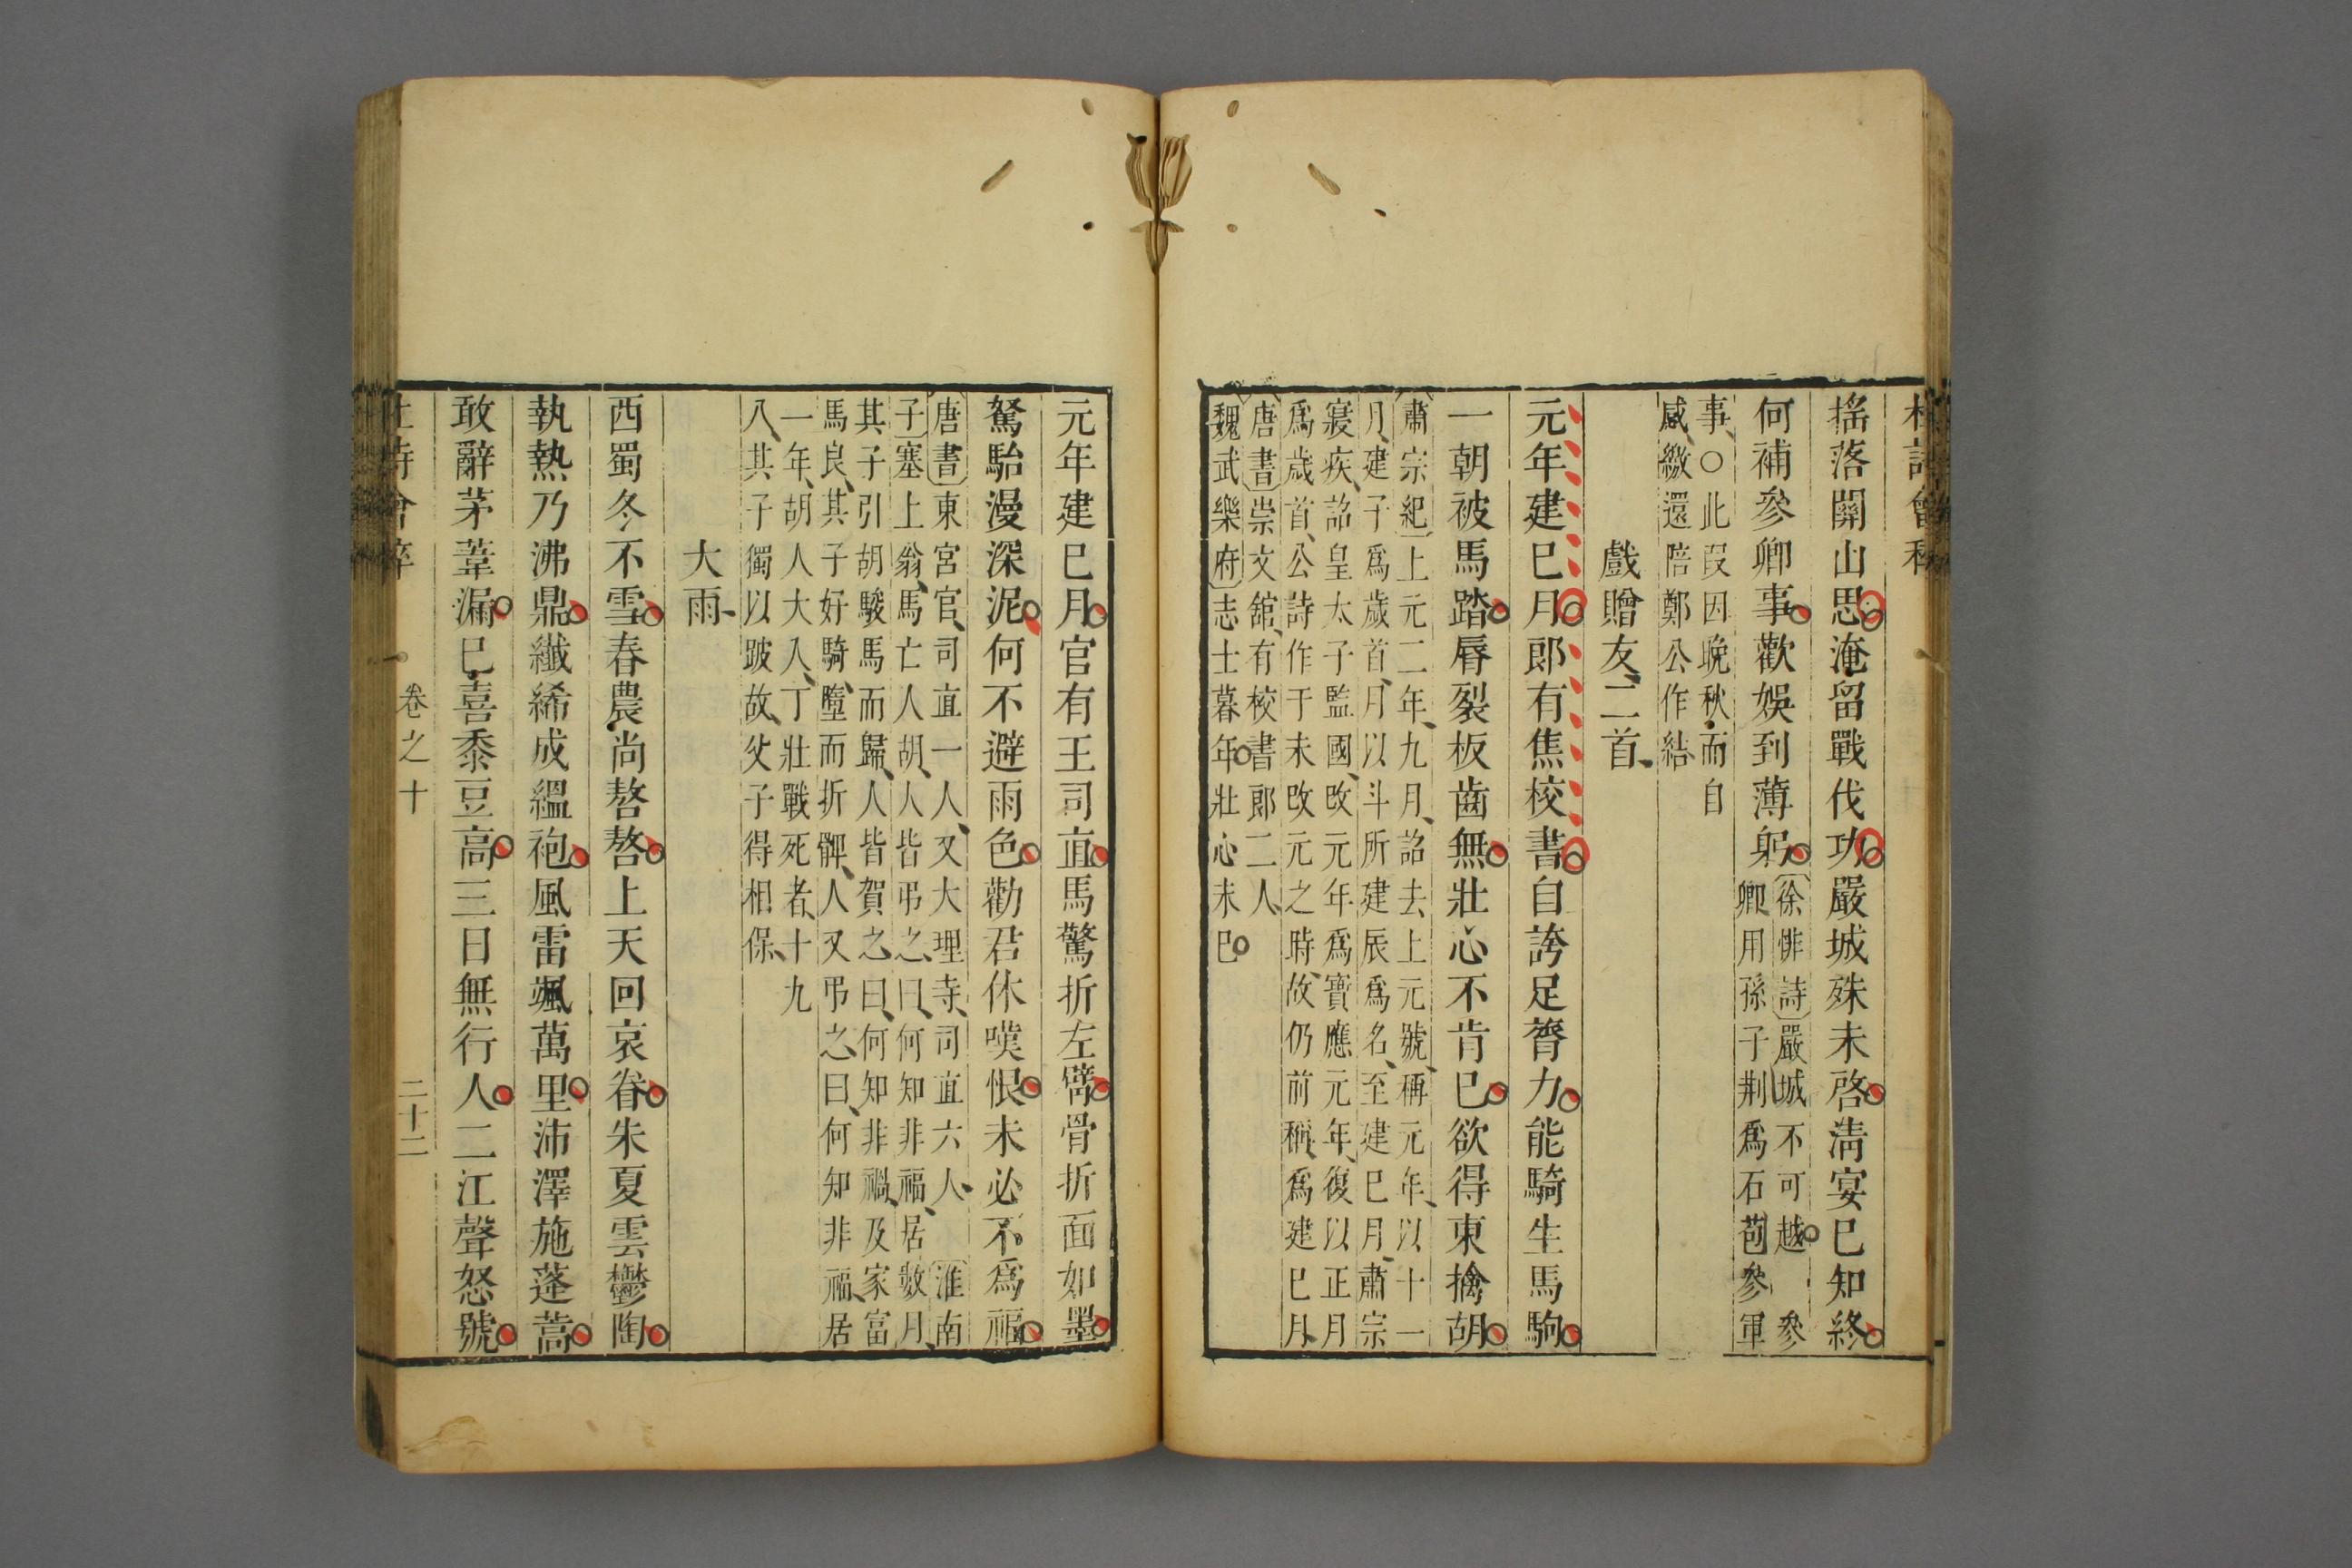 搖落關山思淹留戰伐功嚴城殊未啓淸宴巳知終
何補參卿事歡娛到薄躬
徐悱詩嚴城不可越　參
卿用孫子荆爲石苞參軍
事○此叚因晚秋而自
感繳還陪鄭公作結
戲贈友二首
元年建巳月郎有焦校書自誇足膂力能騎生馬駒
一朝被馬踏脣裂板齒無壯心不肯巳欲得東擒胡
肅宗紀上元二年九月詔去上元號稱元年以十一
月建子爲歲首月以斗所建辰爲名至建巳月肅宗
寢疾詔皇太子監國改元年爲寶應元年復以正月
爲歲首公詩作于未改元之時故仍前稱爲建巳月
唐書崇文舘有校書郎二人
魏武樂府志士暮年壯心未巳
元年建巳月官有王司直馬驚折左臂骨折面如墨
駑駘漫深泥何不避雨色勸君休嘆恨未必不爲福
唐書東宮官司直一人又大理寺司直六人　淮南
子塞上翁馬亡人胡人皆弔之曰何知非福居數月
其子引胡駿馬而歸人皆賀之曰何知非禍及家富
馬良其子好騎墮而折髀人又弔之曰何知非福居
一年胡人大入丁壯戰死者十九
八其子獨以跛故父子得相保
大雨
西蜀冬不雪春農尚嗸嗸上天回哀眷朱夏雲鬱陶
執熱乃沸鼎纖絺成縕袍風雷颯萬里沛澤施蓬蒿
敢辭茅葦漏巳喜黍豆高三日無行人二江聲怒號
卷之十
二十二